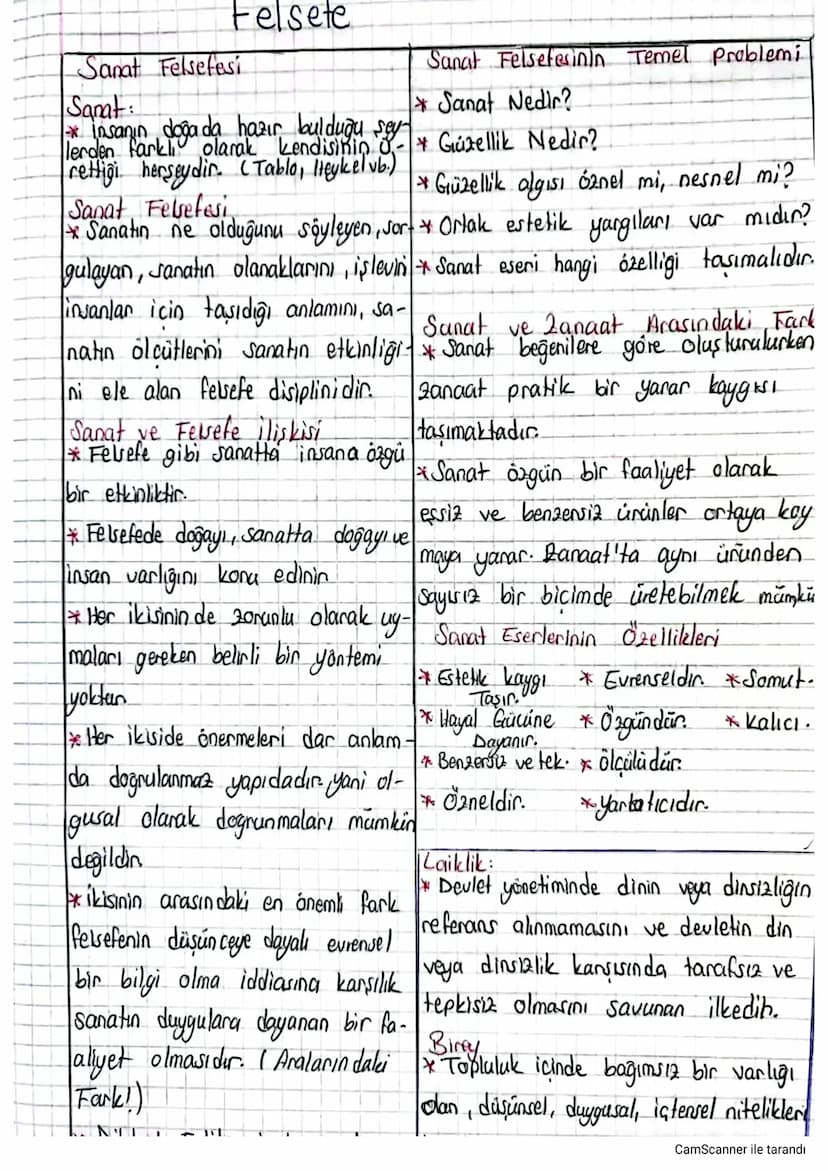 Felsefe
Sanat Felsefesi
Sanat:
* İnsanın doğada hazır bulduğu şey-
lerden farklı olarak kendisinin ü-
rettiği herşeydir. (Tablo, Heykel vb.)
Sanat Felsefesi
* Sanatın ne olduğunu söyleyen, sor-
gulayan, sanatın olanaklarını, işlevini
insanlar için taşıdığı anlamını, sa-
natın ölçütlerini sanatın etkinliği-
ni ele alan felsefe disiplinidir.
Sanat ve Felsefe İlişkisi
* Felsefe gibi sanatta insana özgü
bir etkinliktir.
* Felsefede doğayı, sanatta doğayı ve
insan varlığını konu edinir
* Her ikisinin de zorunlu olarak uy-
maları gereken belirli bir yöntemi
yoktur
* Her ikiside önermeleri dar anlam-
da doğrulanmaz yapıdadır. yani ol-
gusal olarak doğrunmaları mümkün
değildir
* İkisinin arasındaki en önemli fark
felsefenin düşünceye dayalı evrensel
bir bilgi olma iddiasına karşılık
sanatın duygulara dayanan bir fa-
aliyet olmasıdır. (Aralarındaki
Fark!)
Sanat Felsefesinin Temel Problemi
* Sanat Nedir?
* Güzellik Nedir?
* Güzellik algısı öznel mi, nesnel mi?
* Ortak estetik yargıları var mıdır?
* Sanat eseri hangi özelliği taşımalıdır.
Sanat ve Zanaat Arasındaki Fark
* Sanat beğenilere göre oluşturulurken
zanaat pratik bir yarar kaygısı
taşımaktadır.
* Sanat özgün bir faaliyet olarak
eşsiz ve benzersiz ürünler ortaya koy
maya yarar. Zanaat'ta aynı üründen
sayısız bir biçimde üretebilmek mümkü
Sanat Eserlerinin Özellikleri
* Estetik kaygı Taşır. * Evrenseldir. * Somut.
* Hayal Gücüne Dayanır. * Özgündür. * Kalıcı.
* Benzersiz ve tek. * Ölçülüdür.
* Özneldir. * Yaratıcıdır.
Laiklik:
* Devlet yönetiminde dinin veya dinsizliğin
referans alınmamasını ve devletin din
veya dinsizlik karşısında tarafsız ve
tepkisiz olmasını savunan ilkedir.
Birey
* Topluluk içinde bağımsız bir varlığı
olan, düşünsel, duygusal, içtensel nitelikleri
CamScanner ile tarandı